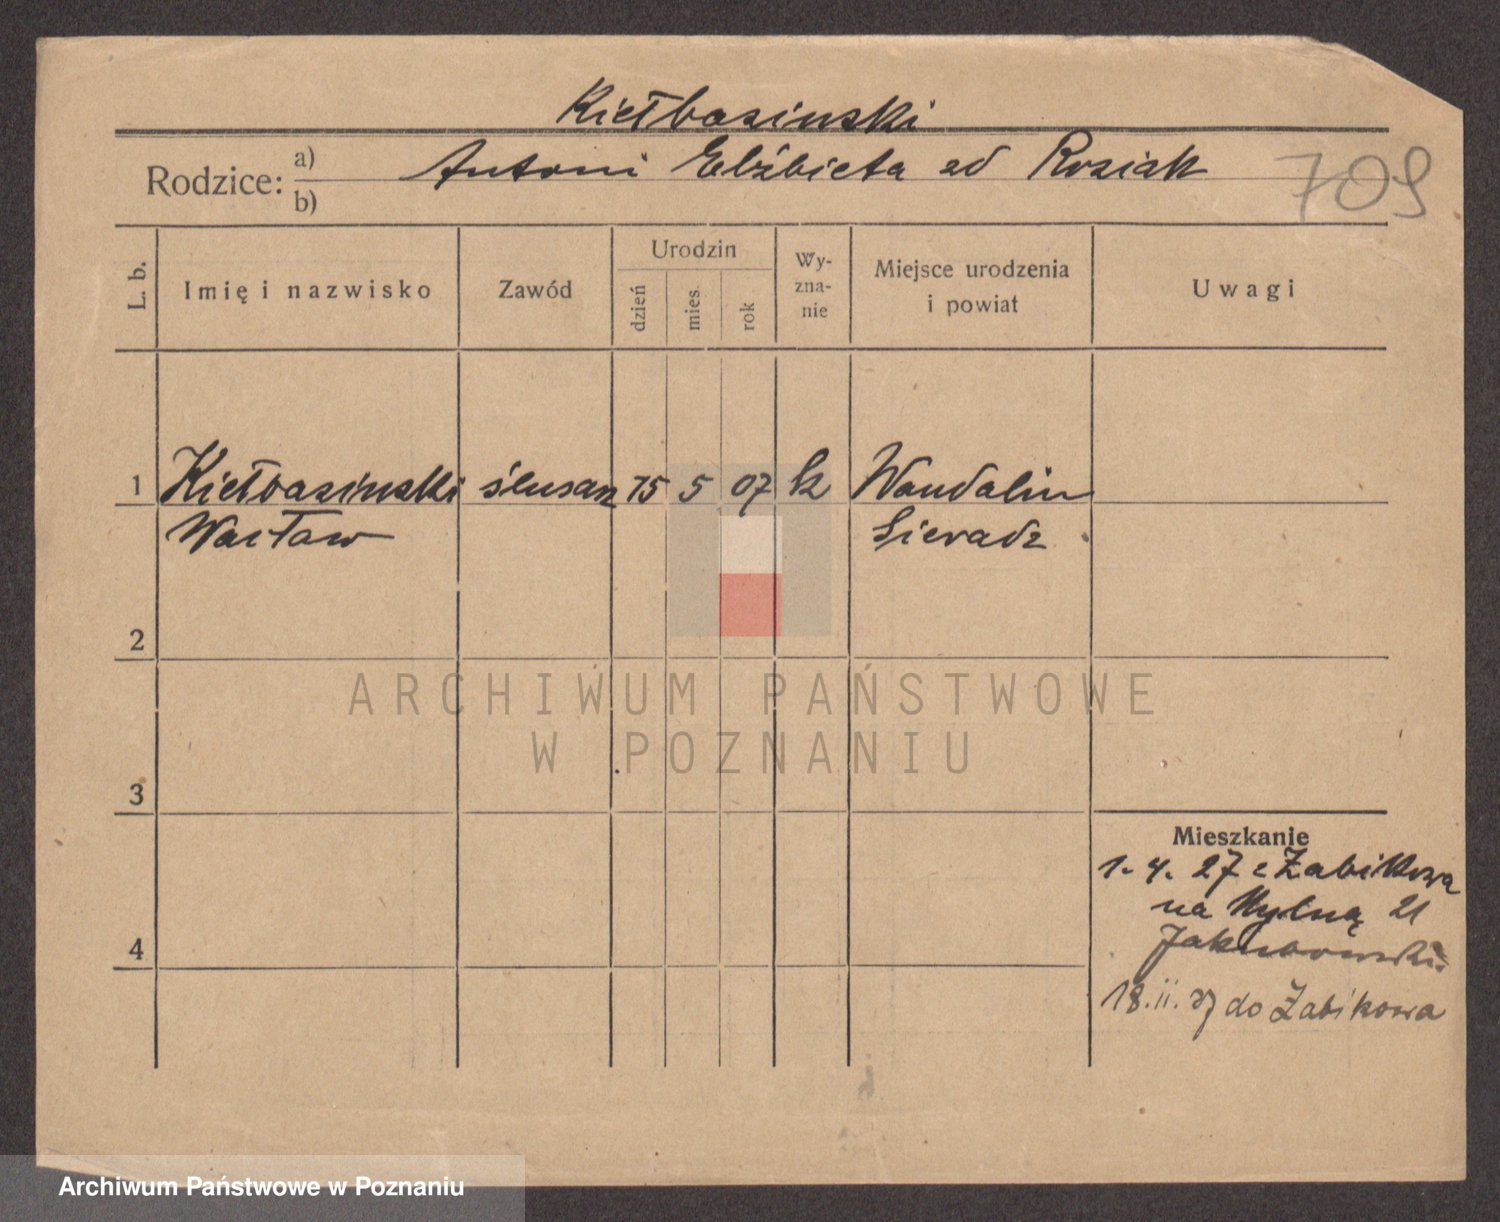 Kiełbasinski
Rodzice: a) Antoni Elżbieta zd Rosiak
b)
709
L. b.
Imię i nazwisko
Zawód
Urodzin
dzień
mies.
rok
Wy-
zna-
nie
Miejsce urodzenia
i powiat
Uwagi
1 Kiełbasinski ślusarz 15 5 07 k Wandalin
Wacław Sieradz
2
ARCHIWUM PAŃSTWOWE
W POZNANIU
3
Mieszkanie
1. 4. 27 z Żabikowa
na Wylną 21
4 Jakubowski
18. ii. 27 do Żabikowa
Archiwum Państwowe w Poznaniu